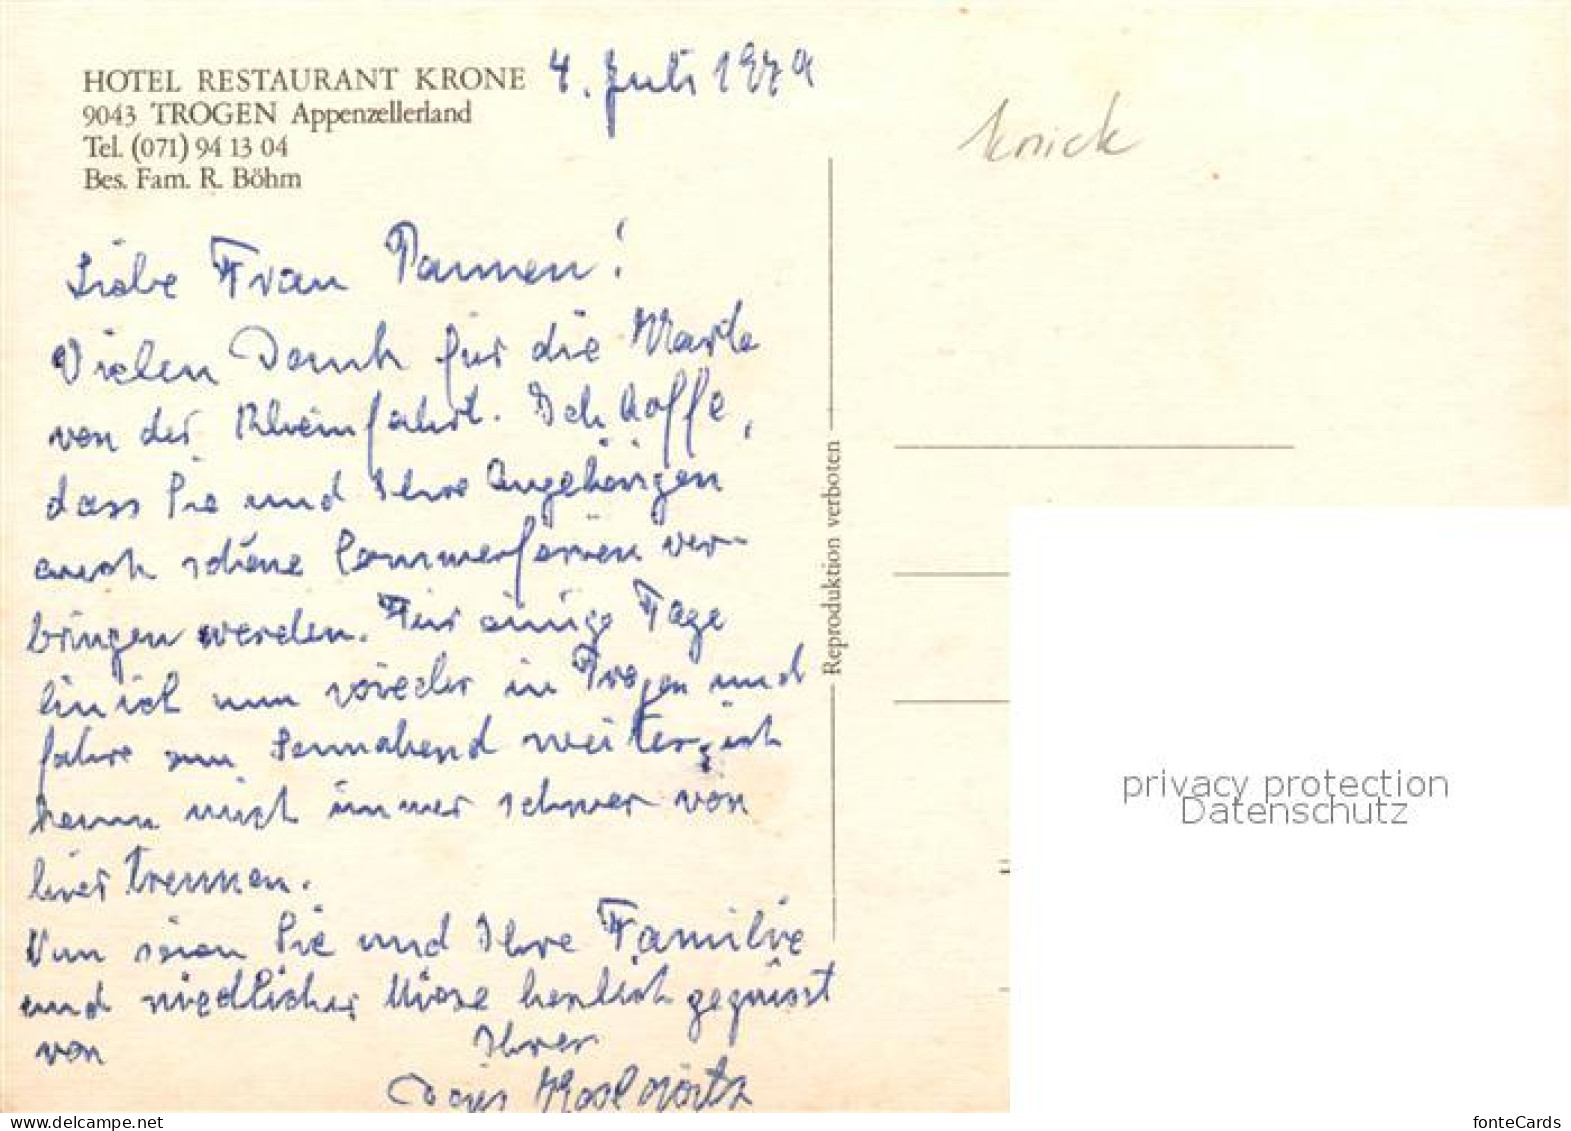 HOTEL RESTAURANT KRONE
9043 TROGEN Appenzellerland
Tel. (071) 94 13 04
Bes. Fam. R. Böhm
4. Juli 1979
Knick
Liebe Frau Pannen!
Vielen Dank für die Karte
von der Rheinfahrt. Ich hoffe,
dass Sie und Ihre Angehörigen
auch schöne Sommerferien ver-
bringen werden. Für einige Tage
bin ich nun wieder in Trogen und
fahre am Sonnabend weiter, ich
kann mich immer schwer von
hier trennen.
Nun seien Sie und Ihre Familie
und niedlicher Miese herzlich gegrüsst
von Ihrer
Doris
Reproduktion verboten
privacy protection
Datenschutz
fonteCards